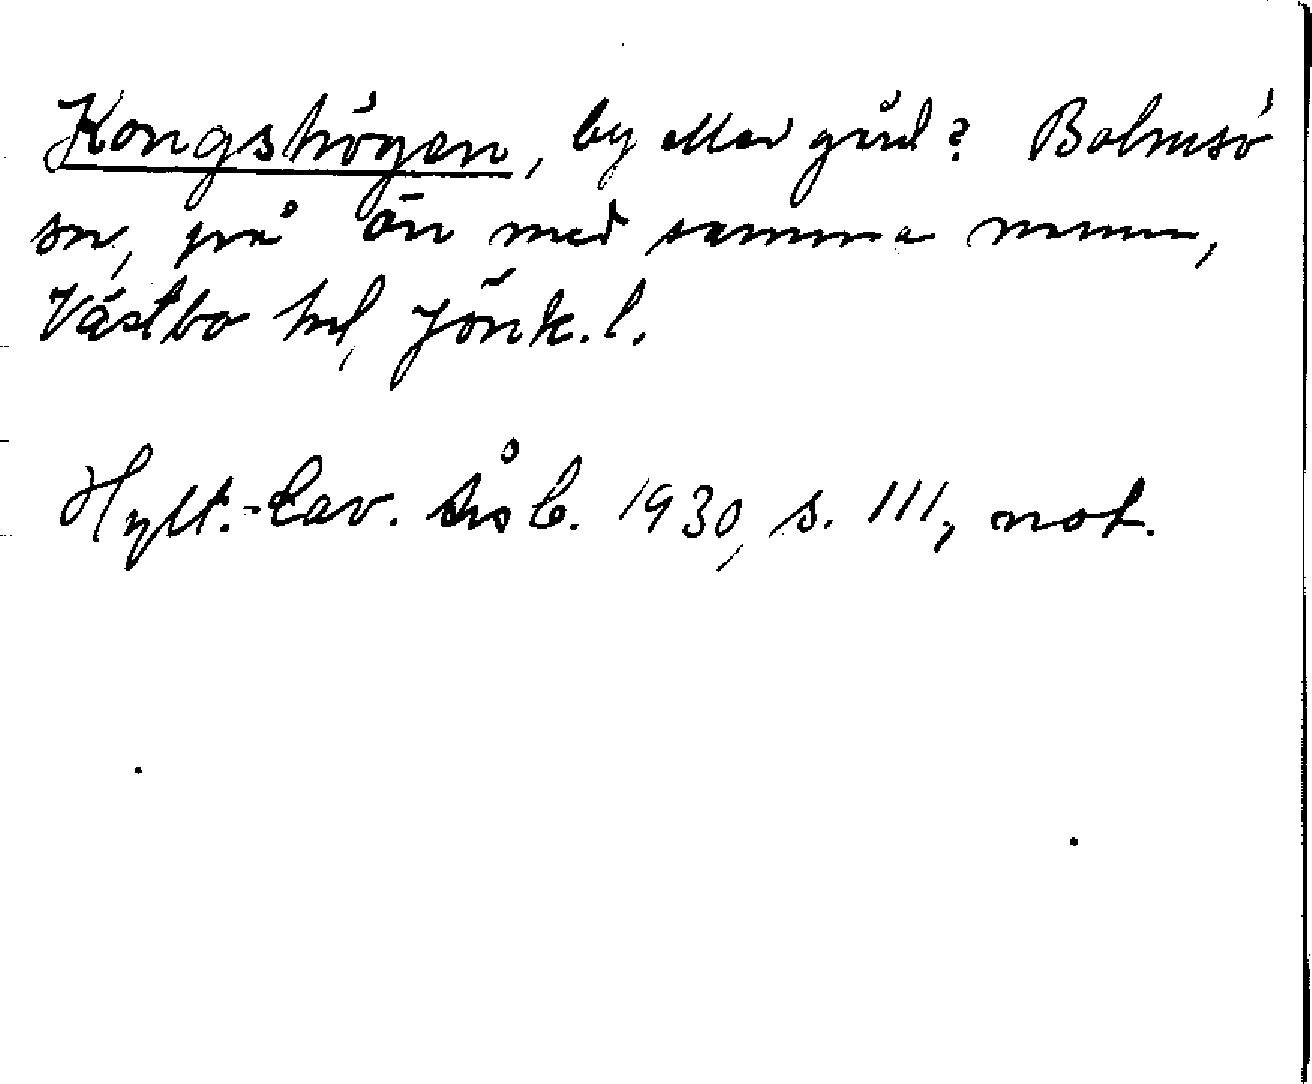 Kongshögen, by eller gård? Bolmsö
sn, på ön med samma namn,
Västbo hd, Jönk. l.
Hylt.-Cav. 1930, s. 111, not.